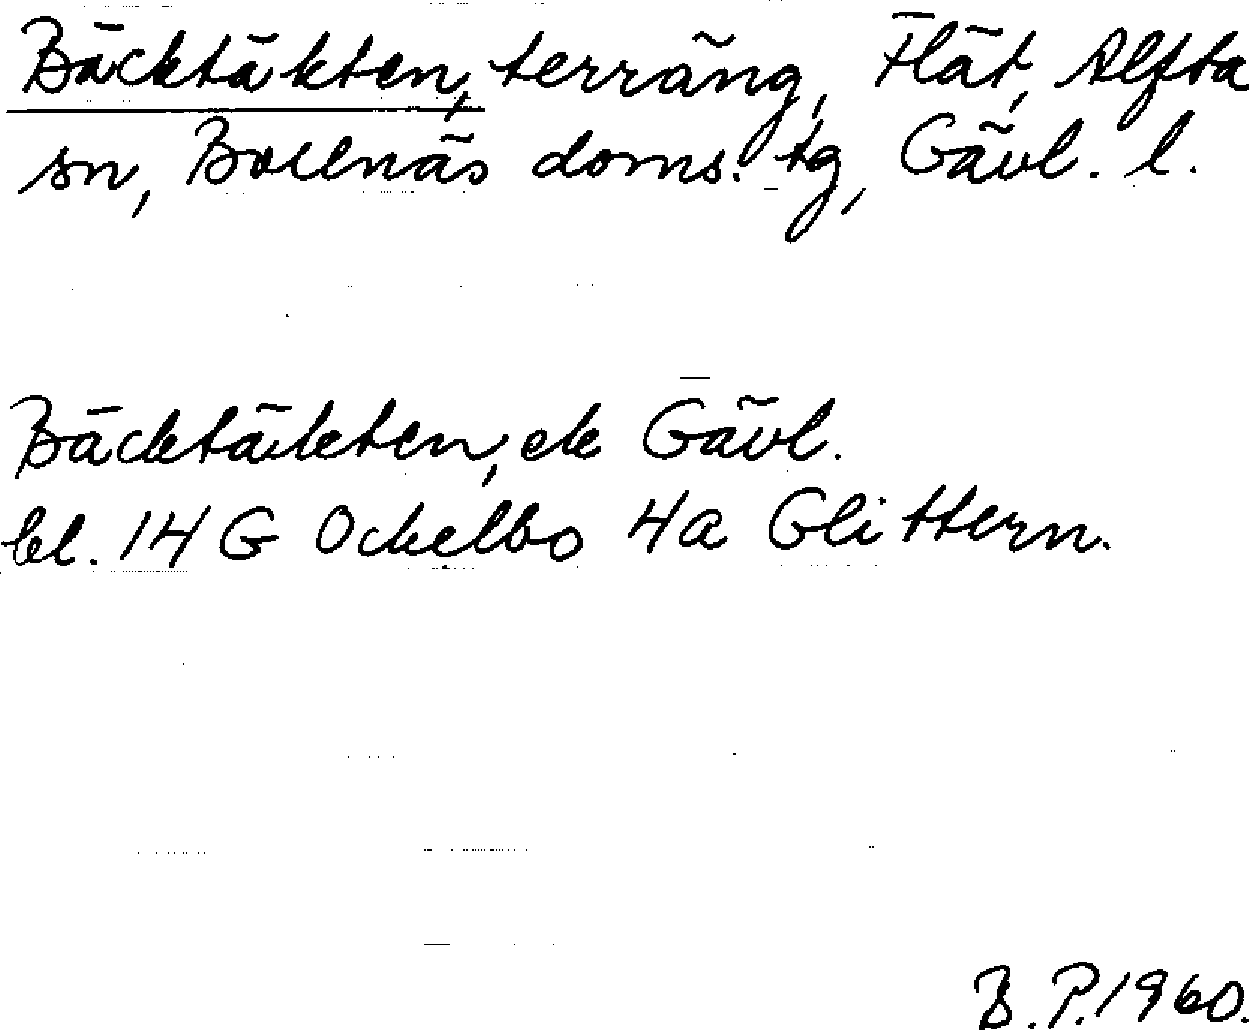 Bäcktäkten, terräng, Flät, Alfta
sn, Bollnäs doms. tg, Gävl. l.
Bäcktäkten, ek Gävl.
bl. 14 G Ockelbo 4a Glittern.
B. P. 1960.